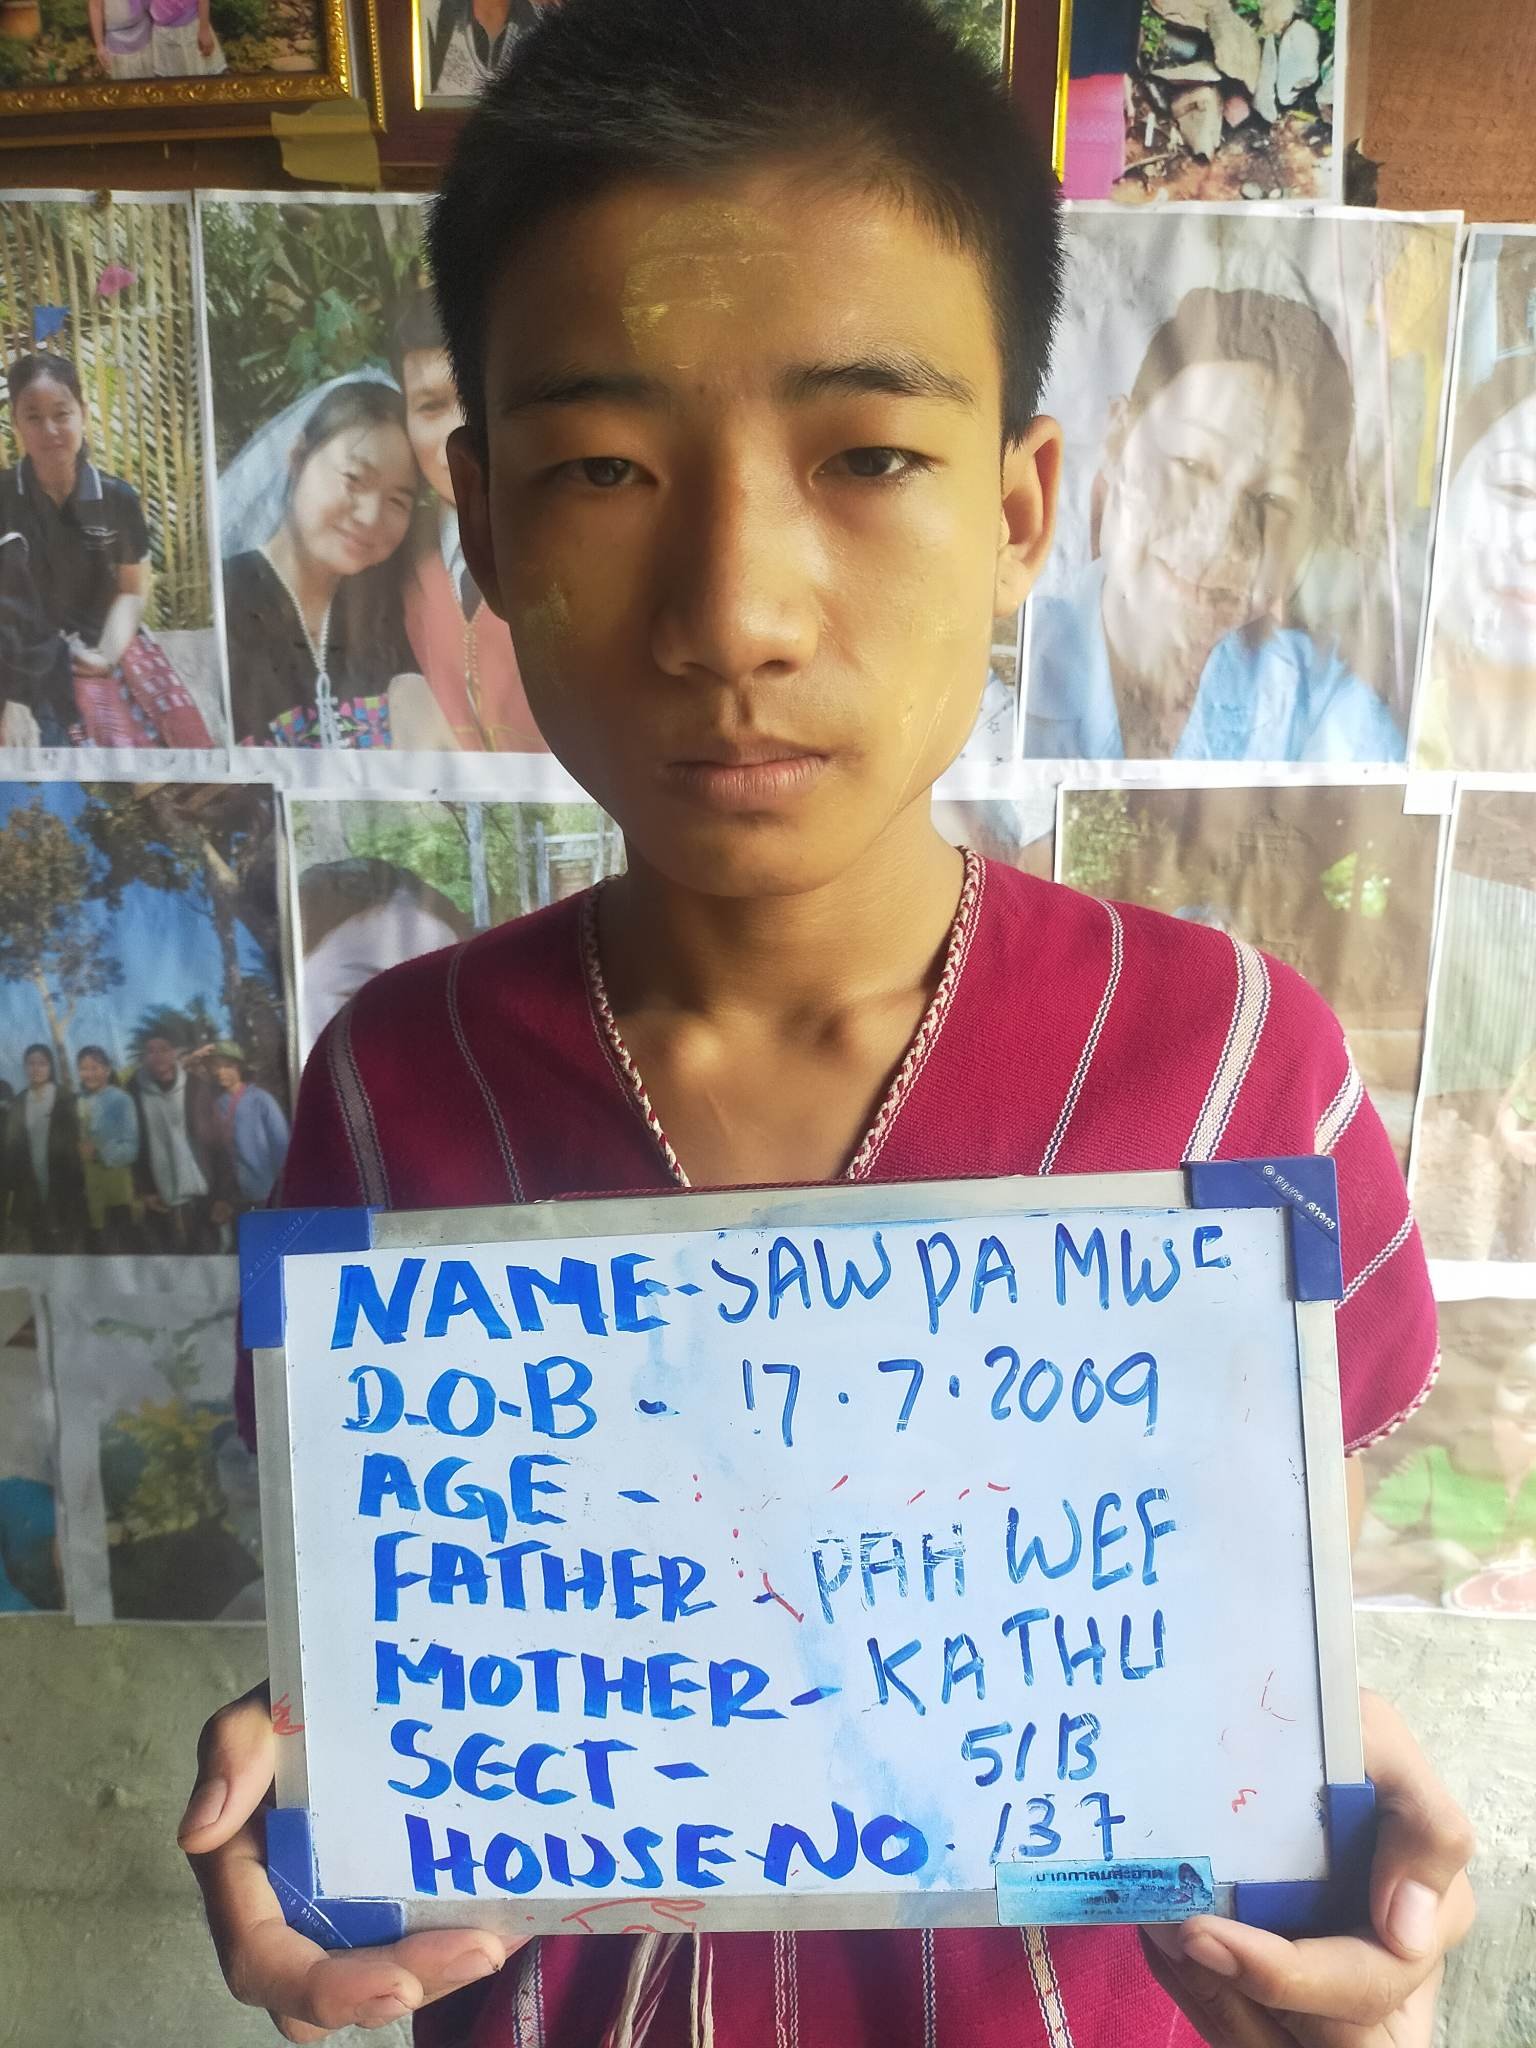 NAME - SAW PA MWE
D-O-B - 17.7.2009
AGE -
FATHER - PAH WEF
MOTHER - KA THU
SECT - 51B
HOUSE-NO. 137